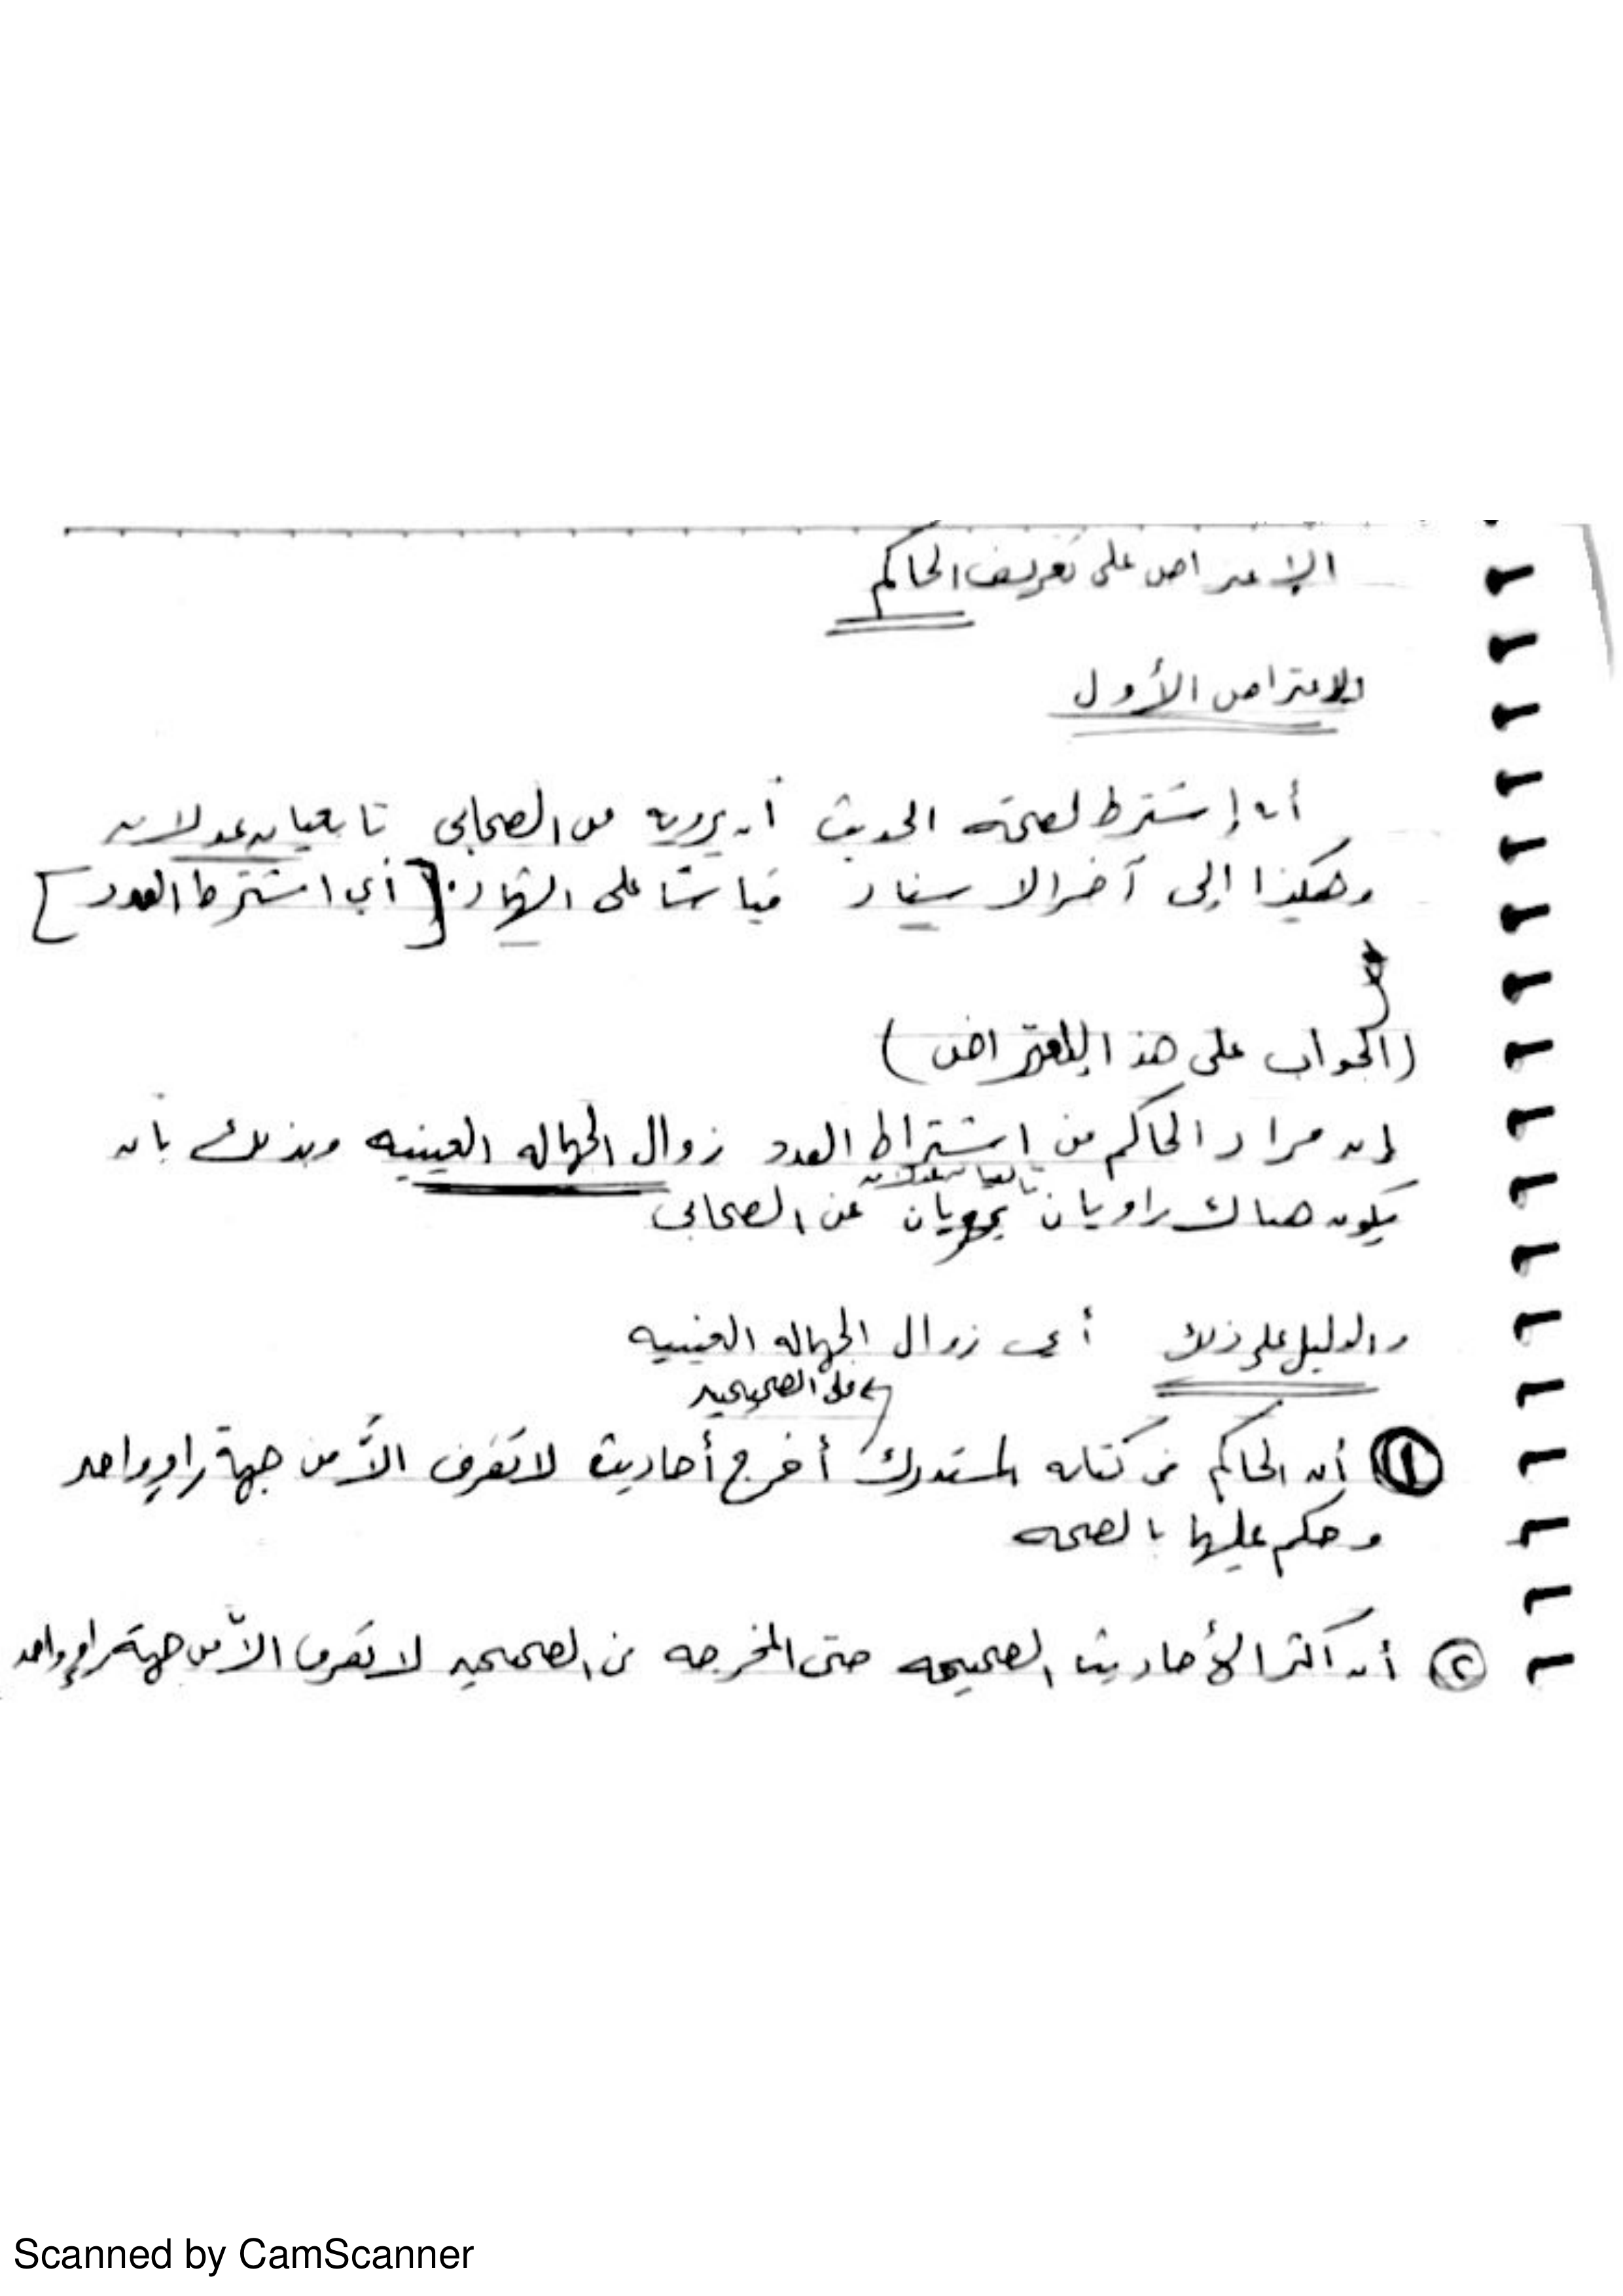 الاعتراض على تعريف الحاكم
الاعتراض الأول
أنه إشترط لصحة الحديث أن يرويه عن الصحابي تابعيان عدلان
وهكذا إلى آخر الاسناد قياسًا على الشهادة. [أي اشترط العدد]
(الجواب على هذا الاعتراض)
إن مراد الحاكم من اشتراط العدد زوال الجهاله العينيه وبذلك بأن
تابعيان عدلان
يكون هناك راويان يرويان عن الصحابي
والدليل على ذلك أي زوال الجهاله العينيه
على الصحيحين
① أن الحاكم في كتابه المستدرك أخرج أحاديث لا تعرف الاّ من جهة راوٍ واحد
وحكم عليها بالصحه
② أن اكثر الأحاديث الصحيحه حتى المخرجه في الصحيحين لا تعرف الاّ من جهة راوٍ واحد
Scanned by CamScanner